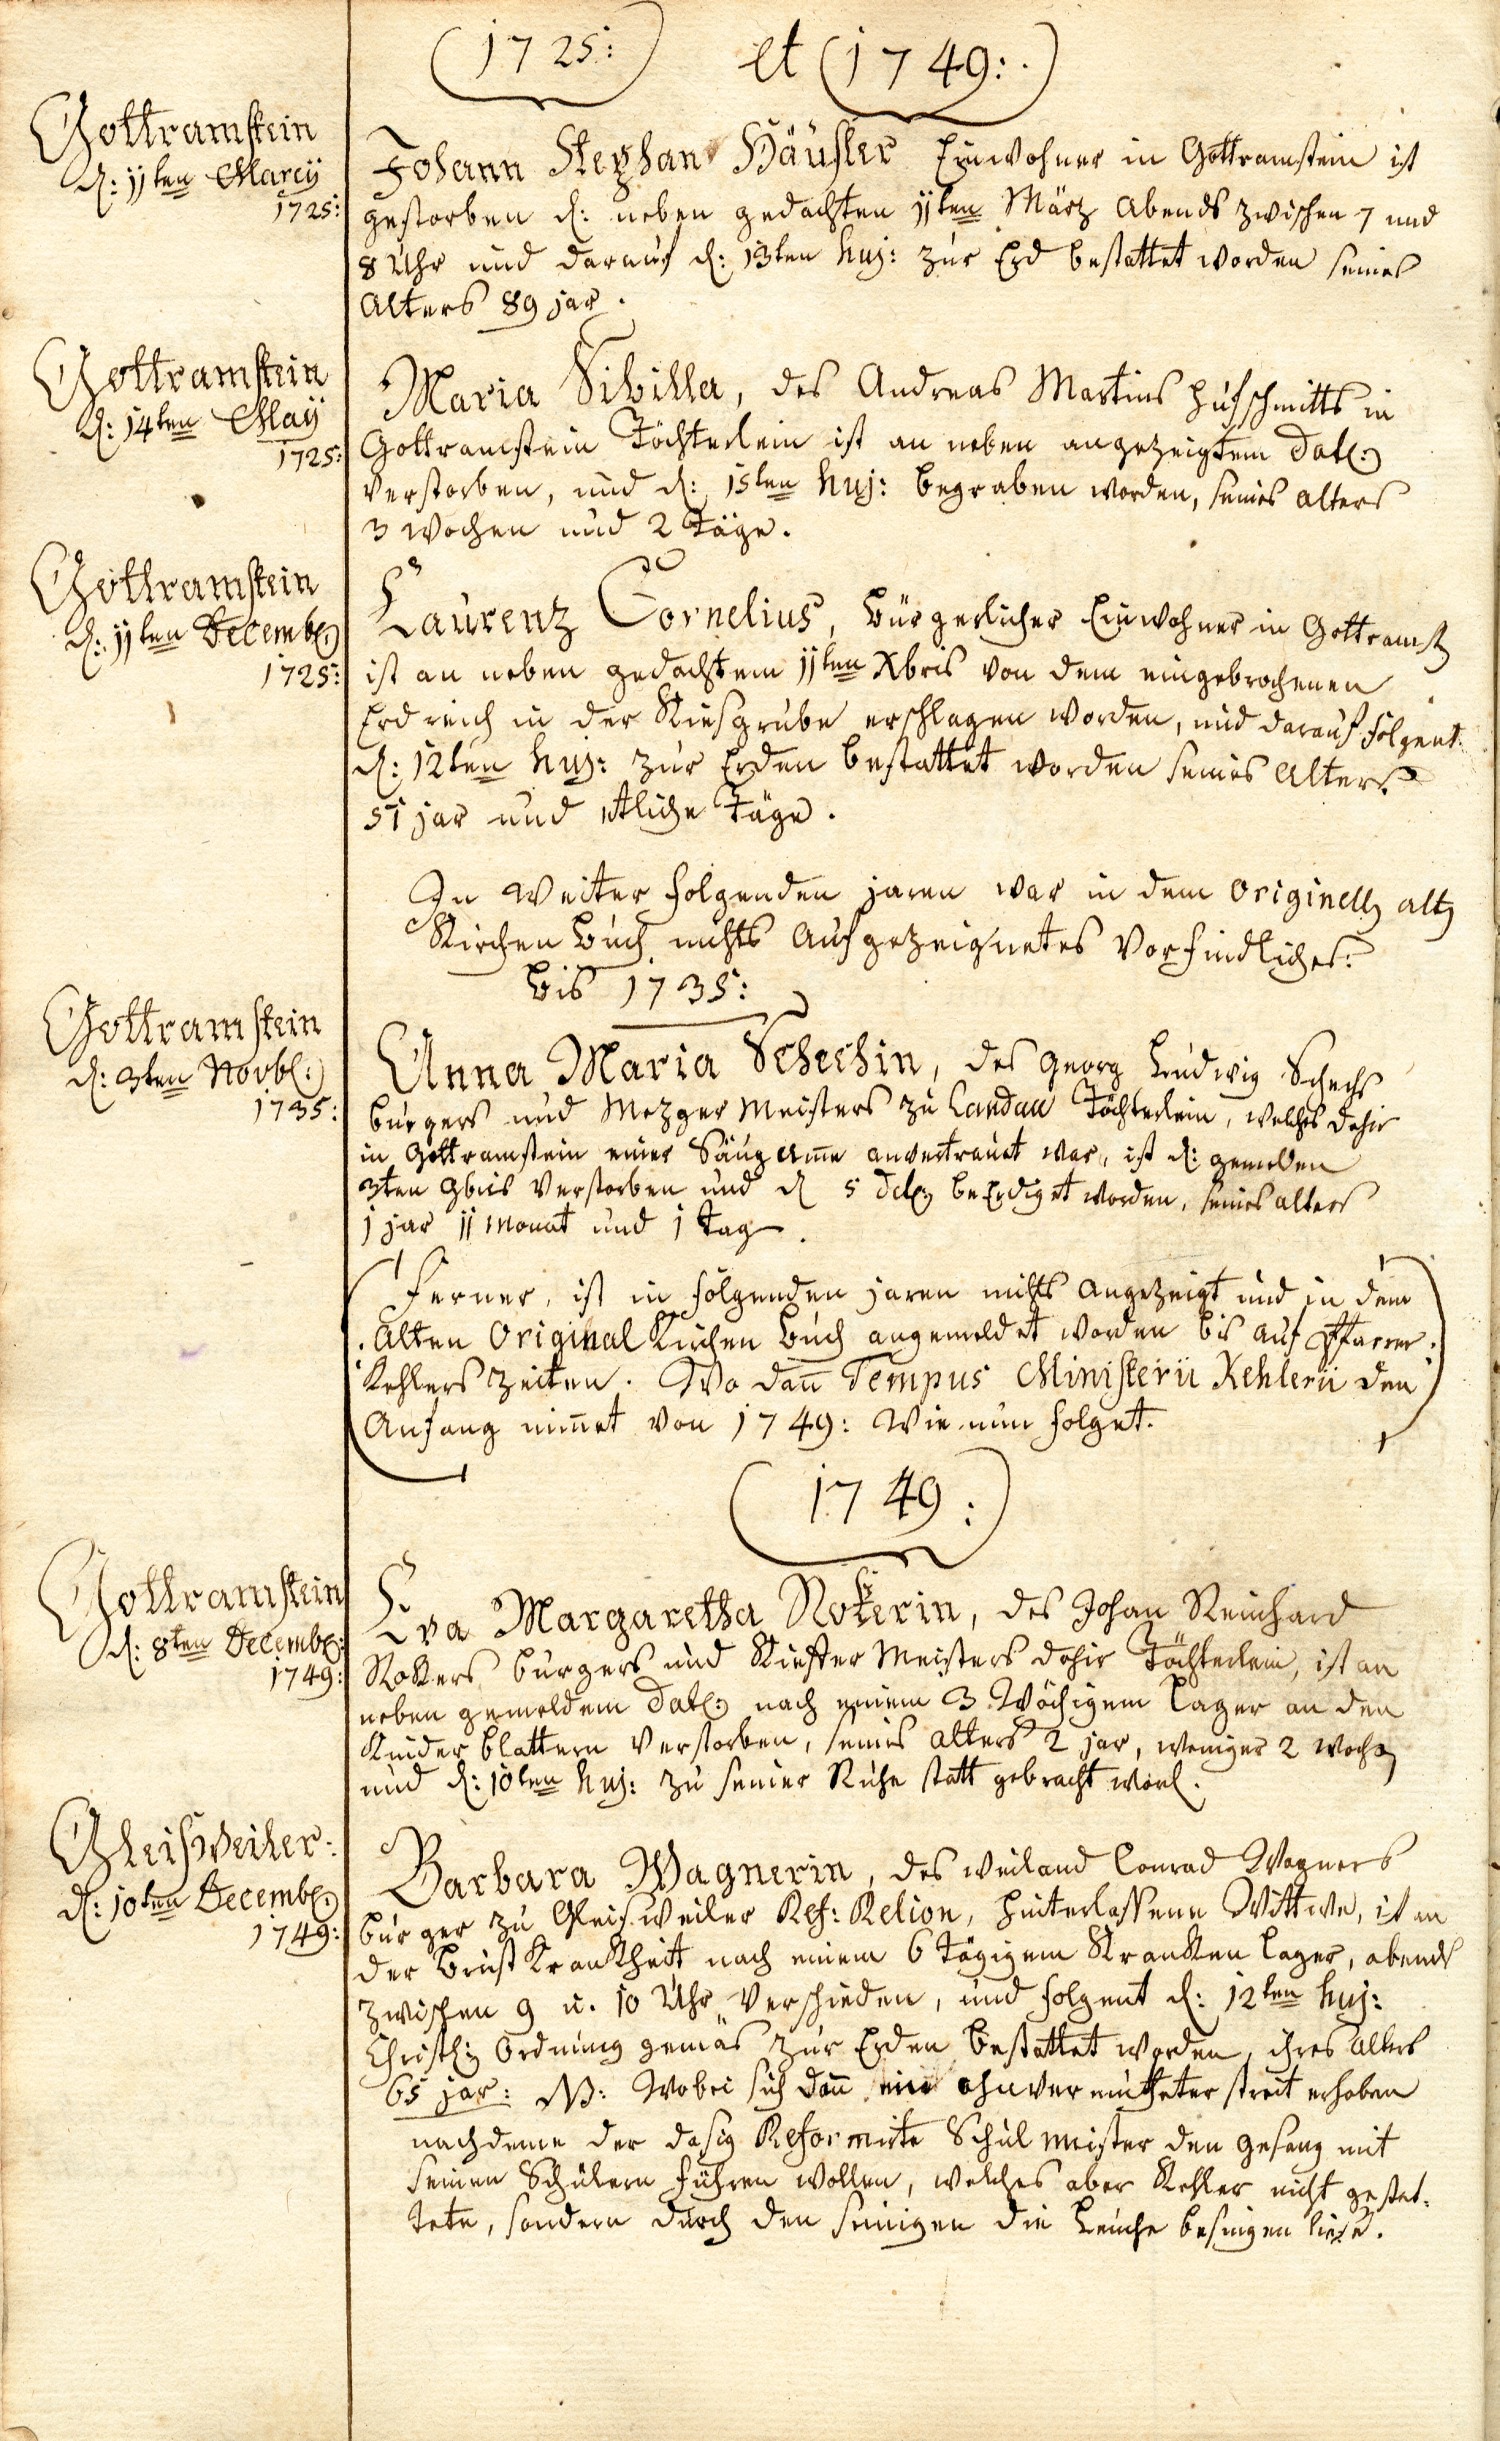 1725: et 1749:.
Gottramstein
d: 11ten Marcij
1725:
Johann Stephan Häußler Einwohner in Gottramstein ist
gestorben d: neben gedachten 11ten Märtz Abends zwischen 7 und
8 Uhr und darauf d: 13ten huj: zur Erd bestattet worden seines
Alters 89 jar.
Gottramstein
d: 14ten Maij
1725:
Maria Sibilla, des Andreas Martins Hufschmitts in
Gottramstein Töchterlein ist an neben angezeigtem Dat:
verstorben, und d: 15ten huj: begraben worden, seines alters
3 wochen und 2 Täge.
Gottramstein
d: 11ten Decemb:
1725:
Laurenz Cornelius, Bürgerlicher Einwohner in Gottramst
ist an neben gedachtem 11ten Xbris von dem eingebrochenen
Erdreich in der Kiesgrube erschlagen worden, und darauf folgent
d: 12ten huj: zur Erden bestattet worden seines Alters
51 jar und etliche Täge.
In weiter folgenden jaren war in dem Originell alt
Kirchen Buch nichts Aufgezeignetes Vorfindliches:
bis 1735:
Gottramstein
d: 3ten Novb:
1735:
Anna Maria Schechin, des Georg Ludwig Schechs
burgers und Mezger Meisters zu Landau Töchterlein, welches dahir
in Gottramstein einer Säug Ame anvertraut war, ist d: gemelden
3ten 9bris verstorben und d 5 beErdiget worden, seines alters
1 jar 11 Monat und 1 Tag.
Ferner, ist in folgenden jaren nichts angezeigt und in dem
Alten Original Kirchen Buch angemeldet worden bis auf Pfarrer
Kehlers Zeiten. Wo dan Tempus Ministerii Kehlerii den
Anfang nimet von 1749: Wie nun folget.
1749:
Gottramstein
d: 8ten Decemb:
1749:
Eva Margaretha Rokerin, des Johan Reinhard
Rokers burgers und Kieffer Meisters dahir Töchterlein, ist an
neben gemeldem Dat: nach einem 3 Wöchigem Lager an den
Kinder blattern verstorben, seines alters 2 jar, weniger 2 woch
und d: 10ten huj: zu seiner Ruhe statt gebracht word.
Gleisweiler:
d: 10ten Decemb:
1749:
Barbara Wagnerin, des weiland Conrad Wagners
burger zu Gleisweiler Ref: Relion, hinterlassene Wittwe, ist an
der Brust Kranckheit nach einem 6 Tägigem Krancken Lager, abends
zwischen 9 u. 10 Uhr verschieden, und folgent d: 12ten huj:
Christl: Ordnung gemäs zur Erden bestattet worden, ihres alters
65 jar: NB: Wobei sich dan ein ohnvermutheter streit erhoben
nachdeme der dasig Reformirte Schul meister den gesang mit
seinen Schülern führen wollen, welches aber Kehler nicht gestat-
tete, sondern durch den seinigen die Leiche besingen liese.